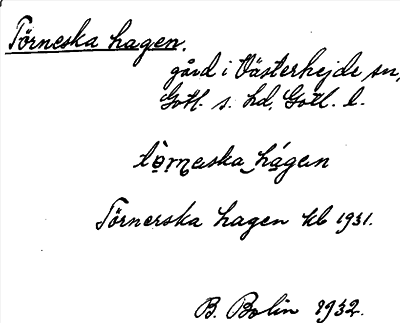 Törneska hagen.
gård i Västerhejde sn,
Gotl. s. hd, Gotl. l.
tö̀rnɐska hágɐn
Törnerska hagen kb 1931.
B. Bolin 1932.